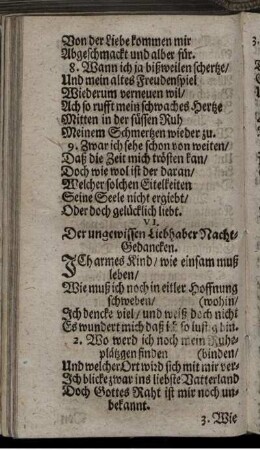 Von der Liebe kommen mir
Abgeschmackt und alber für.
8. Wann ich ja bißweilen schertze/
Und mein altes Freudenspiel
Wiederum verneuen wil/
Ach so rufft mein schwaches Hertze
Mitten in der süssen Ruh
Meinem Schmertzen wieder zu.
9. Zwar ich sehe schon von weiten/
Daß die Zeit mich trösten kan/
Doch wie wol ist der daran/
Welcher solchen Eitelkeiten
Seine Seele nicht ergiebt/
Oder doch gelücklich liebt.
VI.
Der ungewissen Liebhaber Nacht-
Gedancken.
ICh armes Kind/ wie einsam muß
leben/
Wie muß ich noch in eitler Hoffnung
schweben/ (wohin/
Ich dencke viel/ und weiß doch nicht
Es wundert mich daß ich so lustig bin.
2. Wo werd ich noch mein Ruhe-
plätzgen finden (binden/
Und welcher Ort wird sich mit mir ver-
Ich blicke zwar ins liebste Vatterland
Doch Gottes Raht ist mir noch un-
bekannt.
3. Wie